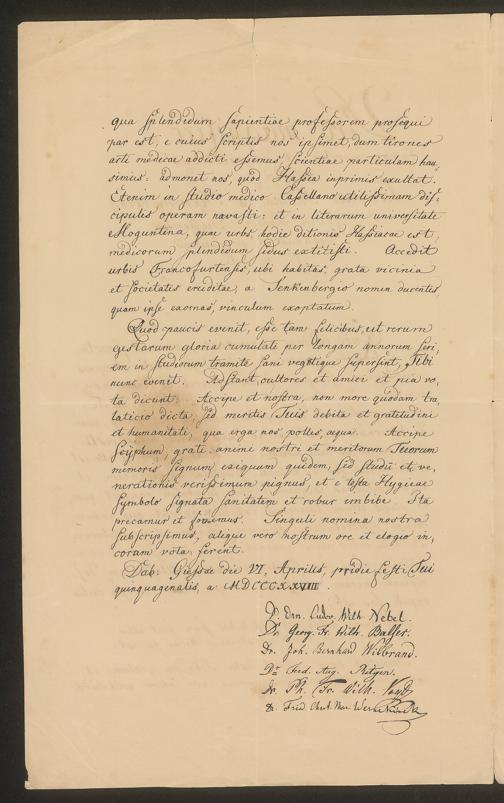 qua splendidum sapientiae professorem prosequi
par est, e cuius scriptis nos ipsimet, dum tirones
arti medicae addicti essemus, scientiae particulam hau-
simus: admonet nos, quod Hassia inprimis exultat.
Etenim in studio medico Cassellano utilissimam dis-
cipulis operam navasti: et in literarum universitate
Moguntina, quae urbs hodie ditionis Hassiacae est,
medicorum splendidum sidus extitisti. Accedit
urbis Francofurtensis, ubi habitas, grata vicinia
et societatis eruditae, a Senkenbergio nomen ducentis
quam ipse exornas, vinculum exoptatum.
Quod paucis evenit, esse tam felicibus, ut rerum
gestarum gloria cumulati per longam annorum seri-
em in studiorum tramite sani vegetique supersint, Tibi
nunc evenit. Adstant, cultores et amici et pia vo-
ta dicunt. Accipe et nostra, non more quodam tra-
laticio dicta, sed meritis Tuis debita et gratitudini
et humanitati, qua erga nos polles, aequa. Accipe
Scyphum, grati animi nostri et meritorum Tuorum
memoris signum exiguum quidem, sed studii et ve-
nerationis verissimum pignus, et e testa Hygieae
symbolo signata sanitatem et robur imbibe. Ita
precamur et Singuli nomina nostra
subscripsimus, atque vero nostrum ore et elogio in-
coram vota ferent.
Dab: Giessae die VI, Aprilis, pridie festi Tui
quinquagenalis, a. MDCCCXXVIII.
Dr. Ern. Ludov. Wilh. Nebel.
Dr. Georg. Fr. Wilh. Balser.
Dr. Joh. Bernhard Wilbrand.
Dr. Ferd. Aug. Ritgen.
Dr. Ph. Fr. Wilh. Vogt
Dr. Frid. Christ.